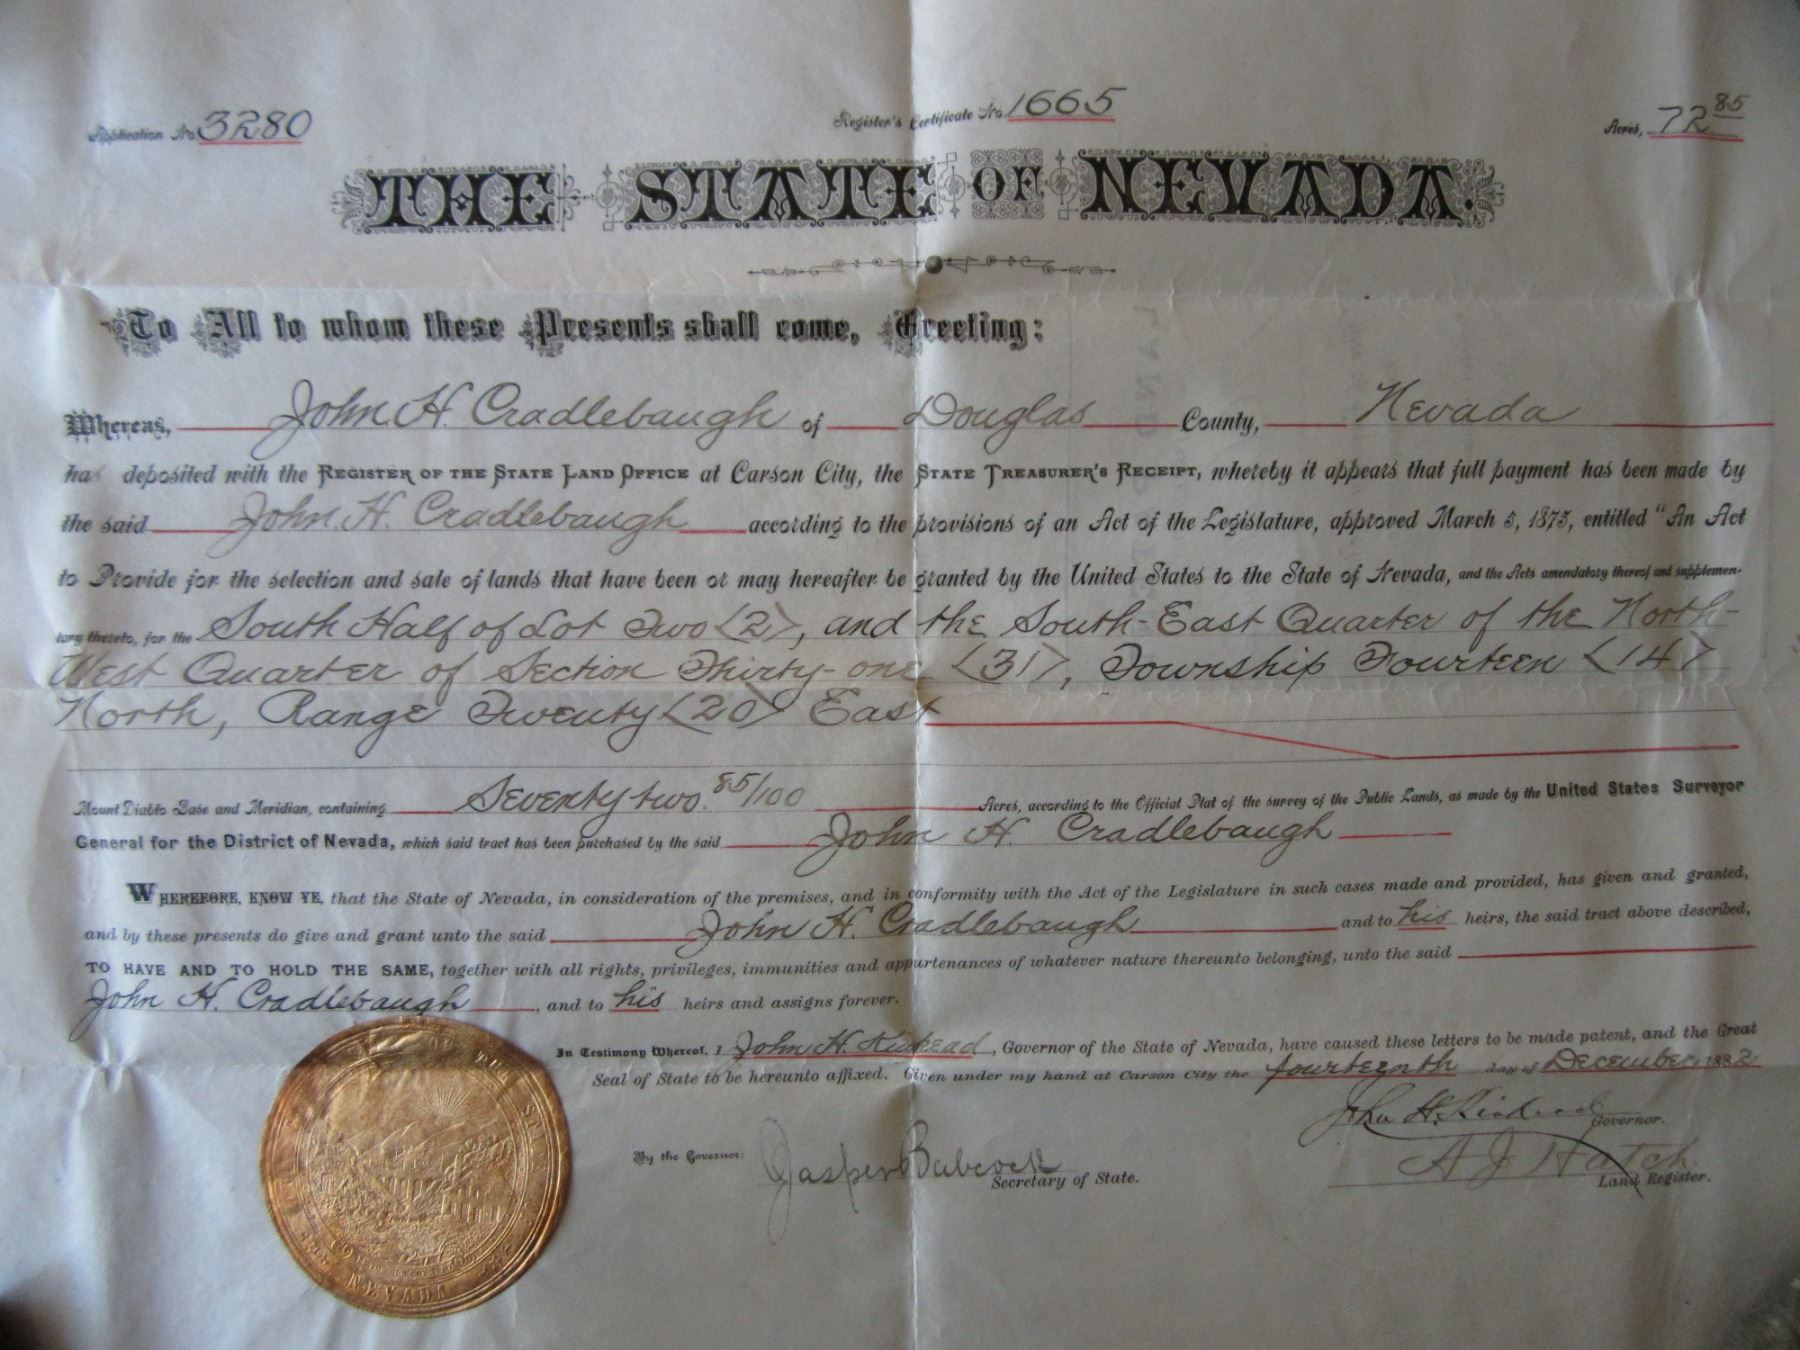 Application No. 3280 Register's Certificate No. 1665 Acres, 72 85
THE STATE OF NEVADA.
To All to whom these Presents shall come, Greeting:
Whereas, John H. Cradlebaugh of Douglas County, Nevada
has deposited with the REGISTER OF THE STATE LAND OFFICE at Carson City, the STATE TREASURER'S RECEIPT, whereby it appears that full payment has been made by
the said John H. Cradlebaugh according to the provisions of an Act of the Legislature, approved March 5, 1873, entitled "An Act
to Provide for the selection and sale of lands that have been or may hereafter be granted by the United States to the State of Nevada, and the Acts amendatory thereof and supplemen-
tary thereto, for the South Half of Lot Two (2), and the South-East Quarter of the North-
West Quarter of Section Thirty-one (31), Township Fourteen (14)
North, Range Twenty (20) East
Mount Diablo Base and Meridian, containing Seventy two. 85/100 Acres, according to the Official Plat of the survey of the Public Lands, as made by the United States Surveyor
General for the District of Nevada, which said tract has been purchased by the said John H. Cradlebaugh
WHEREFORE, KNOW YE, that the State of Nevada, in consideration of the premises, and in conformity with the Act of the Legislature in such cases made and provided, has given and granted,
and by these presents do give and grant unto the said John H. Cradlebaugh and to his heirs, the said tract above described,
TO HAVE AND TO HOLD THE SAME, together with all rights, privileges, immunities and appurtenances of whatever nature thereunto belonging, unto the said
John H. Cradlebaugh, and to his heirs and assigns forever.
In Testimony Whereof, I John H. Kinkead, Governor of the State of Nevada, have caused these letters to be made patent, and the Great
Seal of State to be hereunto affixed. Given under my hand at Carson City the fourteenth day of December 1882
John H. Kinkead Governor.
By the Governor: Jasper Babcock Secretary of State.
A J Hatch Land Register.
OF THE STATE OF NEVADA